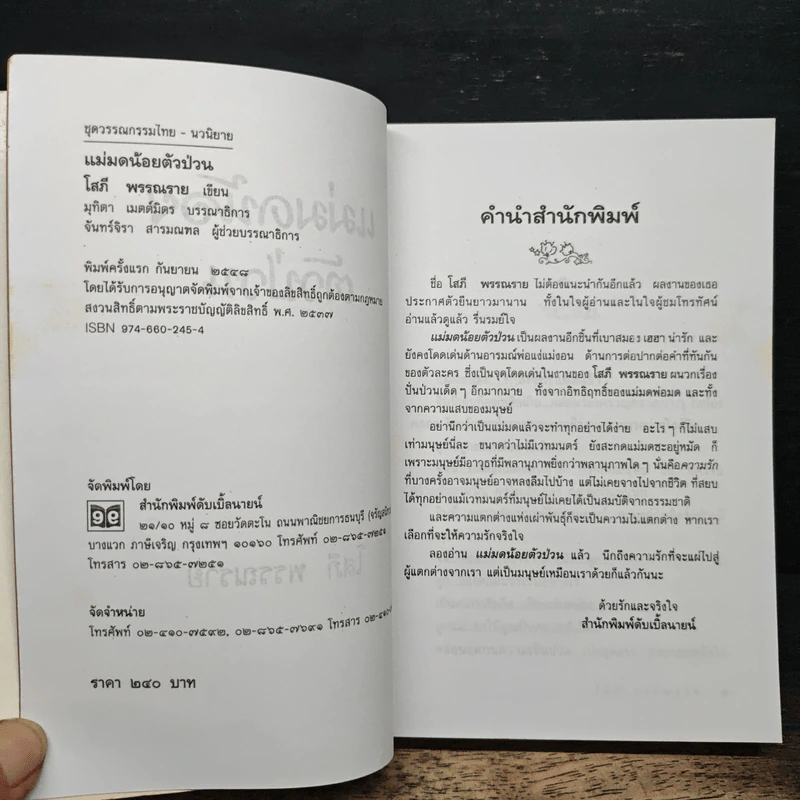 ชุดวรรณกรรมไทย - นวนิยาย
แม่มดน้อยตัวป่วน
โสภี พรรณราย เขียน
มุทิตา เมตต์มิตร บรรณาธิการ
จันทร์จิรา สารมณฑล ผู้ช่วยบรรณาธิการ
พิมพ์ครั้งแรก กันยายน ๒๕๔๘
โดยได้รับการอนุญาตจัดพิมพ์จากเจ้าของลิขสิทธิ์ถูกต้องตามกฎหมาย
สงวนสิทธิ์ตามพระราชบัญญัติลิขสิทธิ์ พ.ศ. ๒๕๓๗
ISBN 974-660-245-4
จัดพิมพ์โดย
สำนักพิมพ์ดับเบิ้ลนายน์
๒๑/๑๐ หมู่ ๘ ซอยวัดตะโน ถนนพาณิชยการธนบุรี
บางแวก ภาษีเจริญ กรุงเทพฯ ๑๐๑๖๐ โทรศัพท์ ๐๒-๘๖๕-๗๒๕๑
โทรสาร ๐๒-๘๖๕-๗๒๕๑
จัดจำหน่าย
โทรศัพท์ ๐๒-๔๑๐-๗๕๙๒, ๐๒-๘๖๕-๗๖๙๑ โทรสาร
ราคา ๒๔๐ บาท
คำนำสำนักพิมพ์
ชื่อ โสภี พรรณราย ไม่ต้องแนะนำกันอีกแล้ว ผลงานของเธอ
ประกาศตัวยืนยาวมานาน ทั้งในใจผู้อ่านและในใจผู้ชมโทรทัศน์
อ่านแล้วดูแล้ว รื่นรมย์ใจ
แม่มดน้อยตัวป่วน เป็นผลงานอีกชิ้นที่เบาสมอง เฮฮา น่ารัก และ
ยังคงโดดเด่นด้านอารมณ์พ่อแง่แม่งอน ด้านการต่อปากต่อคำที่ทันกัน
ของตัวละคร ซึ่งเป็นจุดโดดเด่นในงานของ โสภี พรรณราย ผนวกเรื่อง
ปั่นป่วนเด็ด ๆ อีกมากมาย ทั้งจากอิทธิฤทธิ์ของแม่มดพ่อมด และทั้ง
จากความแสบของมนุษย์
อย่านึกว่าเป็นแม่มดแล้วจะทำทุกอย่างได้ง่าย อะไร ๆ ก็ไม่แสบ
เท่ามนุษย์นี่ละ ขนาดว่าไม่มีเวทมนตร์ ยังสะกดแม่มดซะอยู่หมัด ก็
เพราะมนุษย์มีอาวุธที่มีพลานุภาพยิ่งกว่าพลานุภาพใด ๆ นั่นคือความรัก
ที่บางครั้งอาจมนุษย์อาจหลงลืมไปบ้าง แต่ไม่เคยจางไปจากชีวิต ที่สยบ
ได้ทุกอย่างแม้เวทมนตร์ที่มนุษย์ไม่เคยได้เป็นสมบัติจากธรรมชาติ
และความแตกต่างแห่งเผ่าพันธุ์ก็จะเป็นความไม่แตกต่าง หากเรา
เลือกที่จะให้ความรักจริงใจ
ลองอ่าน แม่มดน้อยตัวป่วน แล้ว นึกถึงความรักที่จะแผ่ไปสู่
ผู้แตกต่างจากเรา แต่เป็นมนุษย์เหมือนเราด้วยก็แล้วกันนะ
ด้วยรักและจริงใจ
สำนักพิมพ์ดับเบิ้ลนายน์